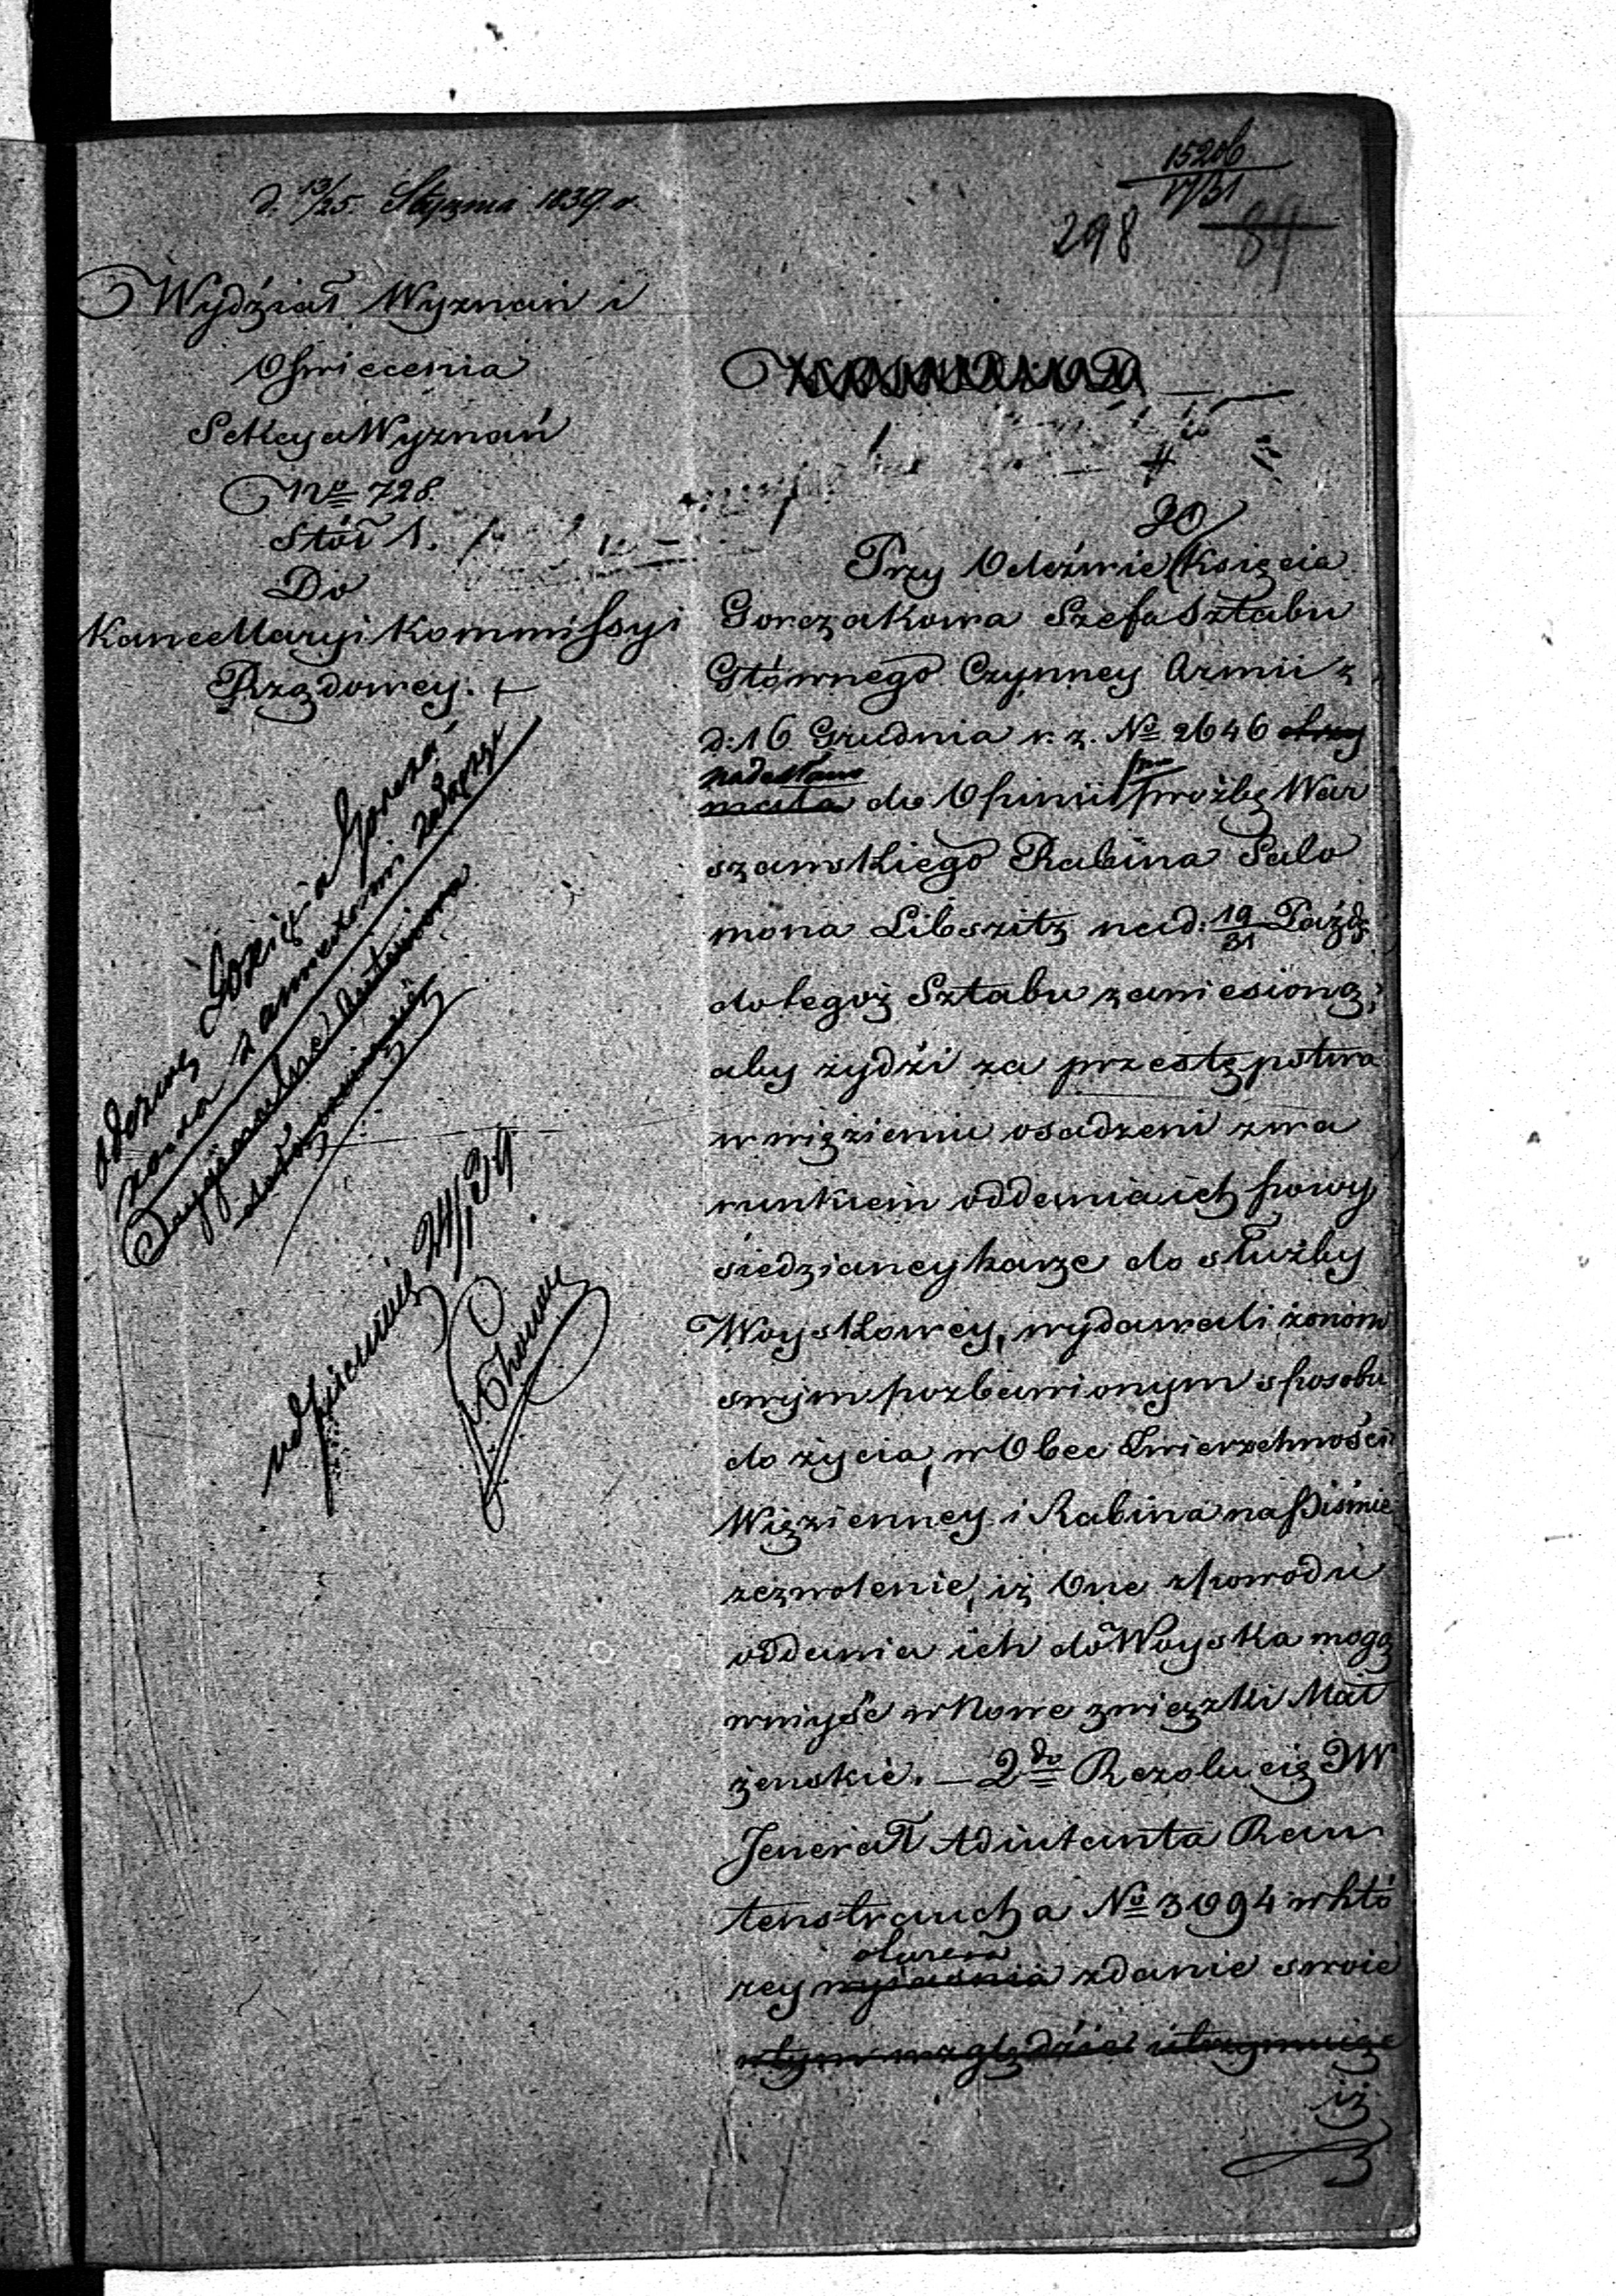 15206
17/31
298 84
d. 13/25. Stycznia 1839. r.
Wydział Wyznań i
Oświecenia
Sekcya Wyznań
No 728.
Stół 1.
Do
Kancellaryi Kommissyi
Rządowey.
odezwę Xsięcia Gorcza
kowa z annexami załączyć
odpisuią 24/1 39
Przy Odezwie Księcia
Gorczakowa Szefa Sztabu
Głównego Czynney Armii z
d: 16 Grudnia r. z. No 2646 otrzy
nadesłano
mała do Opinii prożbę War
szawskiego Rabina Salo
mona Libszitz nad: 19/31 Paźdz.
do tegoż Sztabu zaniesioną;
aby żydzi za przestępstwa
w więzieniu osadzeni z wa
runkiem oddania ich po wy
siedzianey karze do służby
Woyskowey, wydawali żonom
swym pozbawionym sposobu
do życia, w Obec Zwierzchności
Więzienney i Rabina na Piśmie
zezwolenie, iż One z powodu
oddania ich do Woyska mogą
wniyść w Nowe związki Mał
żenskie. — 2do Rezolucią JW
Jenerał Adiutanta Rau
tenstraucha No 3094 w któ
rey wyiaśnia zdanie swoie
w tym względzie utrzymuiąc
iż